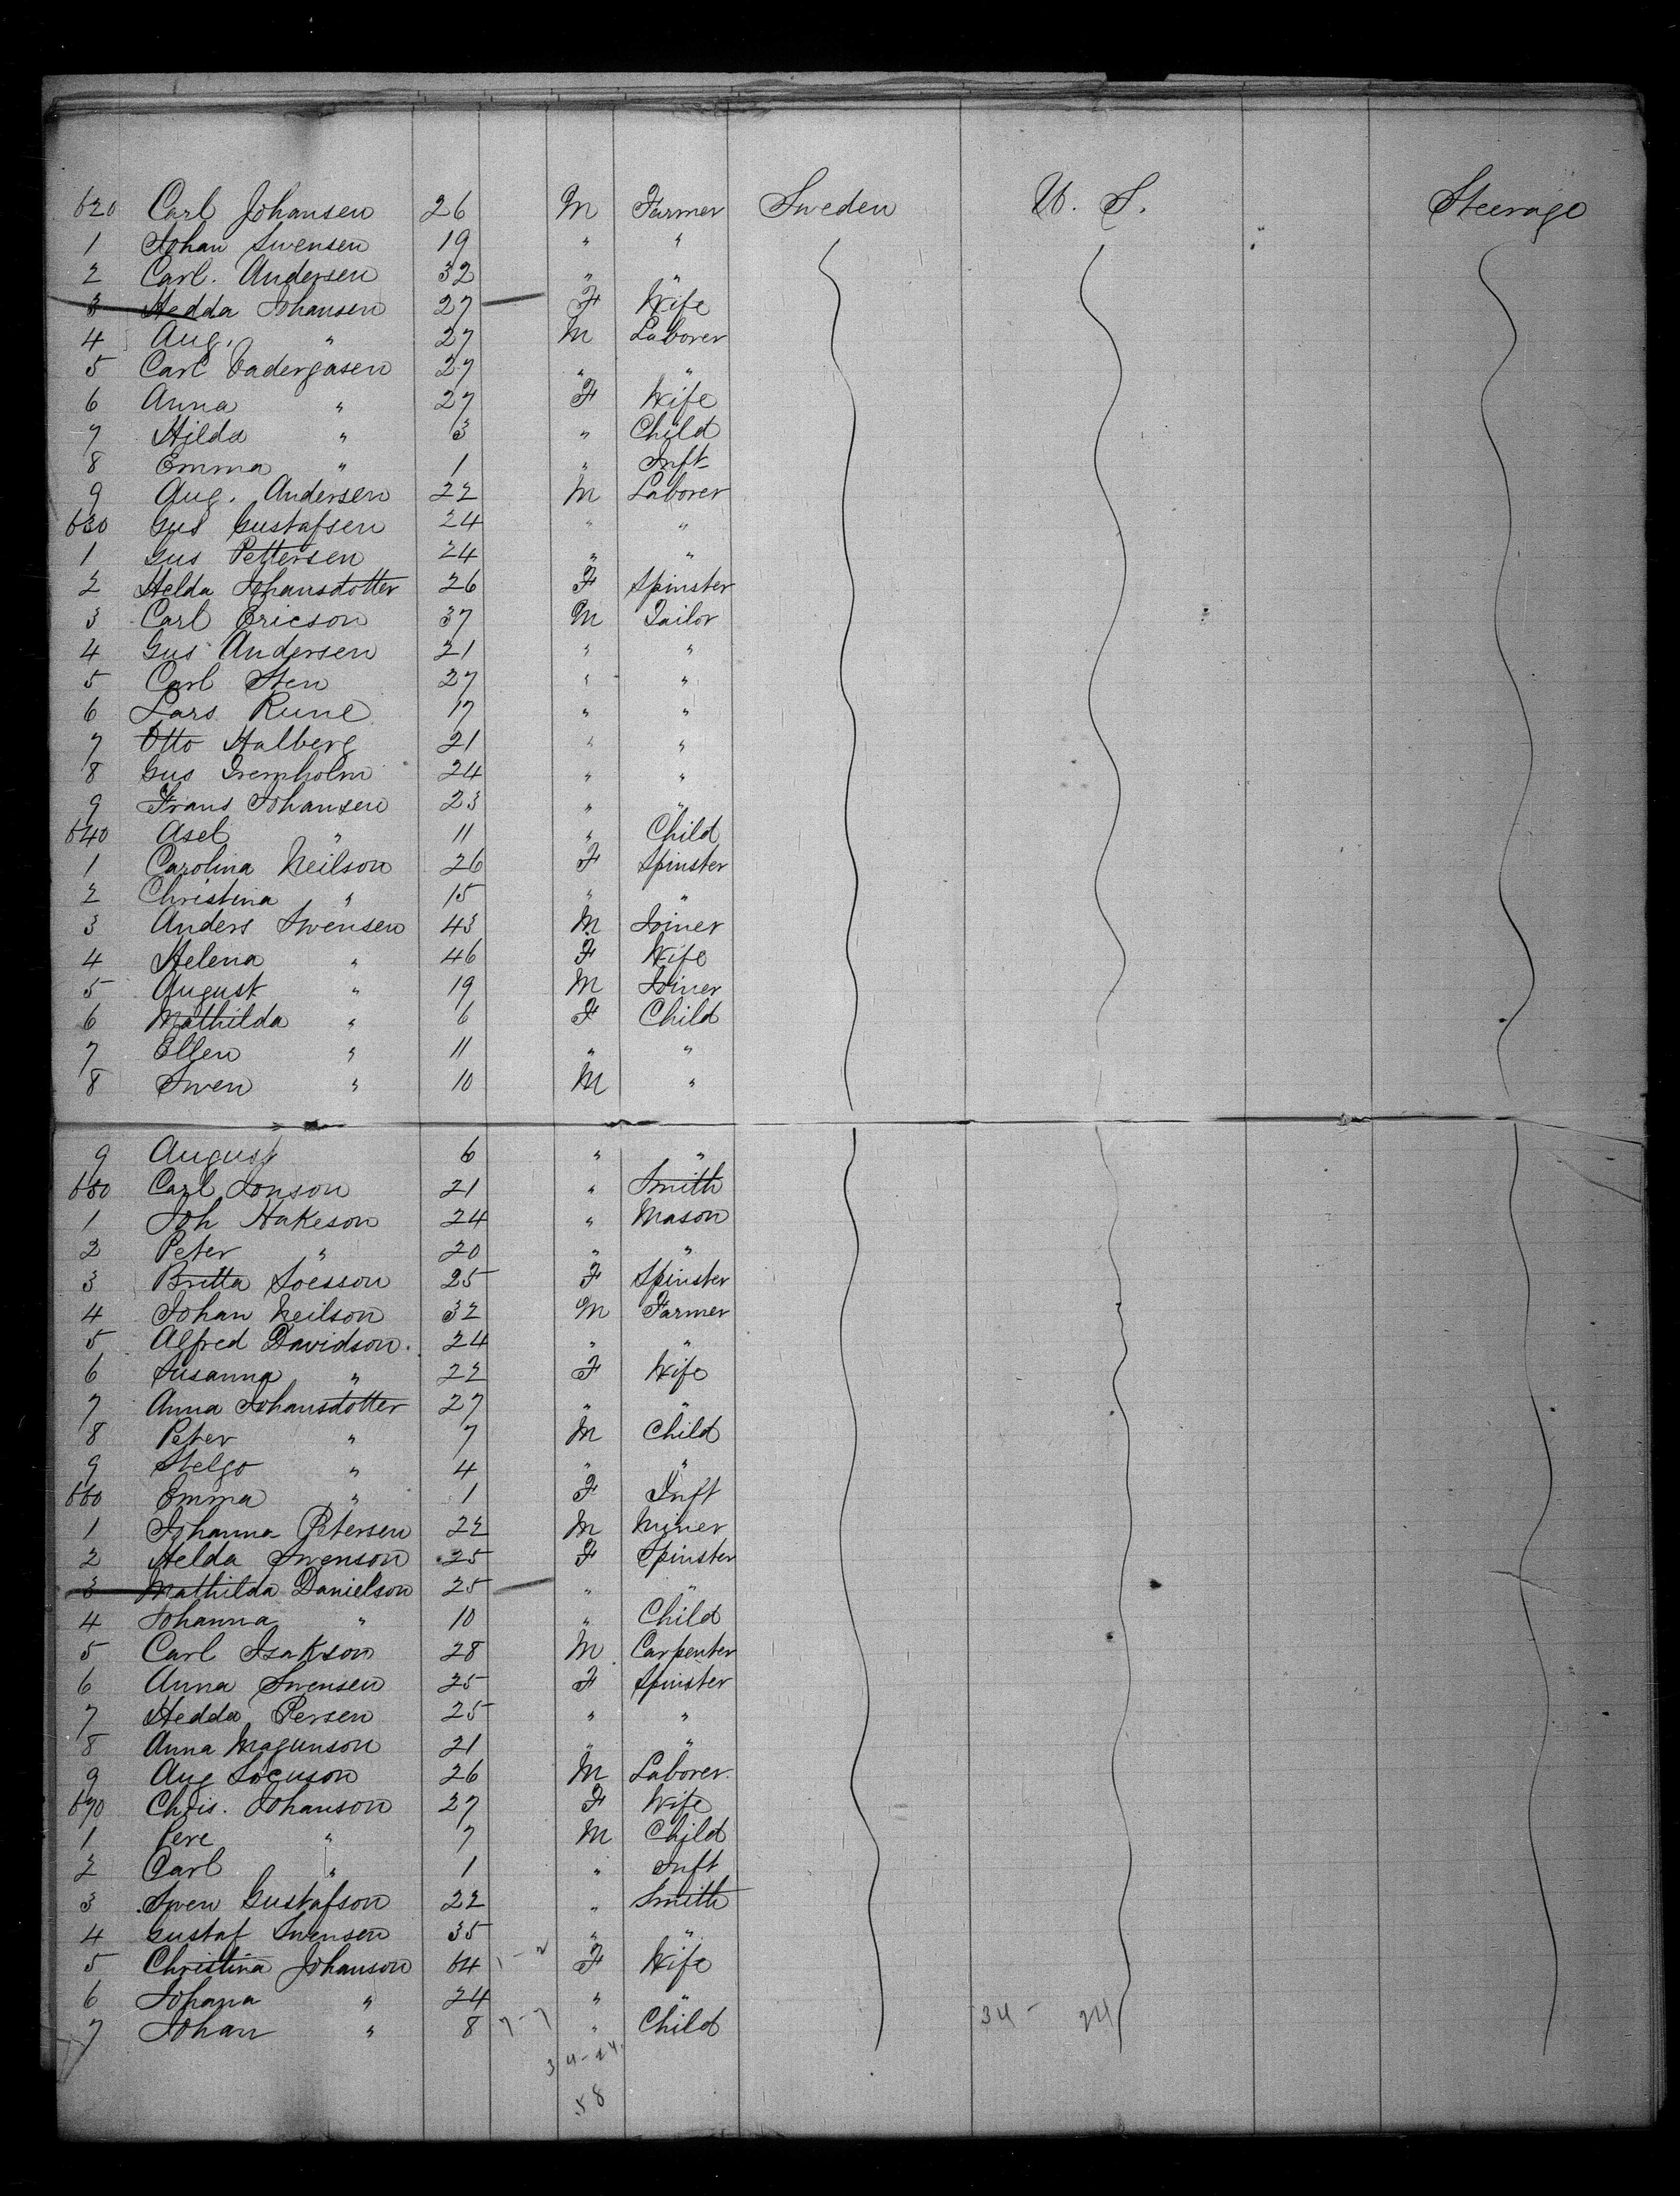 620 Carl Johansen 26 M Farmer Sweden U. S. Steerage
1 Johan Swensen 19 " "
2 Carl. Andersen 32 " "
3 Hedda Johansen 27 F Wife
4 Aug. " 27 M Laborer
5 Carl 27 " "
6 Anna " 27 F Wife
7 Hilda " 3 " Child
8 Emma " 1 " Inft
9 Aug. Andersen 22 M Laborer
630 Gus Gustafsen 24 " "
1 Gus Pettersen 24 " "
2 Helda Johansdotter 26 F Spinster
3 Carl Ericson 37 M Tailor
4 Gus Andersen 21 " "
5 Carl Sten 27 " "
6 Lars Rune 17 " "
7 Otto Halberg 21 " "
8 Gus 24 " "
9 Frans Johansen 23 " "
640 Asel " 11 " Child
1 Carolina Neilson 26 F Spinster
2 Christina " 15 " "
3 Anders Swensen 43 M Joiner
4 Helena " 46 F Wife
5 August " 19 M Joiner
6 Mathilda " 6 F Child
7 Ellen " 11 " "
8 Swen " 10 M "
9 August 6 " "
650 Carl Jonson 21 " Smith
1 Joh Hakeson 24 " Mason
2 Peter " 20 " "
3 Britta 25 F Spinster
4 Johan Neilson 32 M Farmer
5 Alfred Davidson. 24 " "
6 Susanna " 22 F Wife
7 Anna Johansdotter 27 " "
8 Peter " 7 M Child
9 Helgo " 4 " "
660 Emma " 1 F Inft
1 Johanna Petersen 22 M Miner
2 Helda Swenson 25 F Spinster
3 Mathilda Danielson 25 " "
4 Johanna " 10 " Child
5 Carl Isakson 28 M Carpenter
6 Anna Swensen 25 F Spinster
7 Hedda Persen 25 " "
8 Anna Magunson 21 " "
9 Aug 26 M Laborer
670 Chris. Johanson 27 F Wife
1 Pere " 7 M Child
2 Carl " 1 " Inft
3 Swen Gustafson 22 " Smith
4 Gustaf Swensen 35 " "
5 Christina Johanson 64 F Wife
6 Johana " 24 " "
7 Johan " 8 7-7 " Child 34- 24
34-24.
58